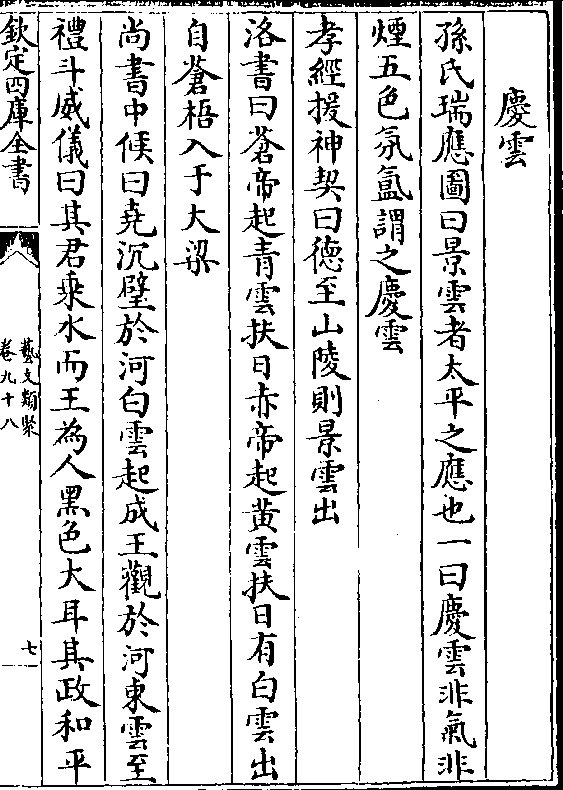 慶雲
孫氏瑞應圖曰景雲者太平之應也一曰慶雲非氣非
煙五色氛氲謂之慶雲
孝經援神契曰德至山陵則景雲出
洛書曰蒼帝起青雲扶日赤帝起黄雲扶日有白雲出
自蒼梧入于大梁
尚書中候曰堯沉璧於河白雲起成王觀於河東雲至
禮斗威儀曰其君乘水而王為人黑色大耳其政和平
欽定四庫全書
藝文類聚
卷九十八
七